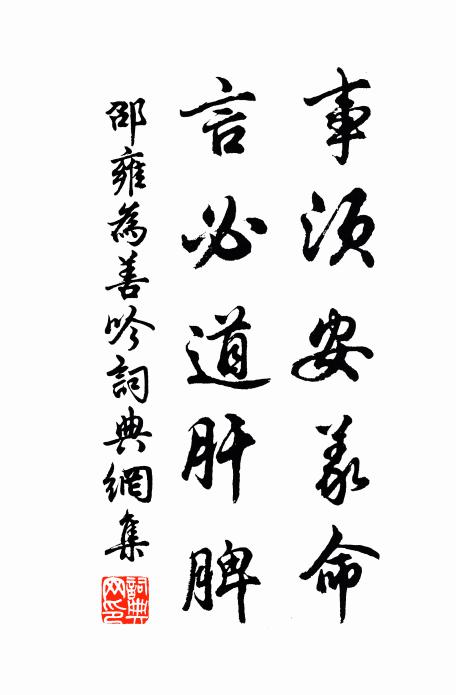 事須安義命
言必道肝脾
邵雍為善吟詞典網集
詞典網印